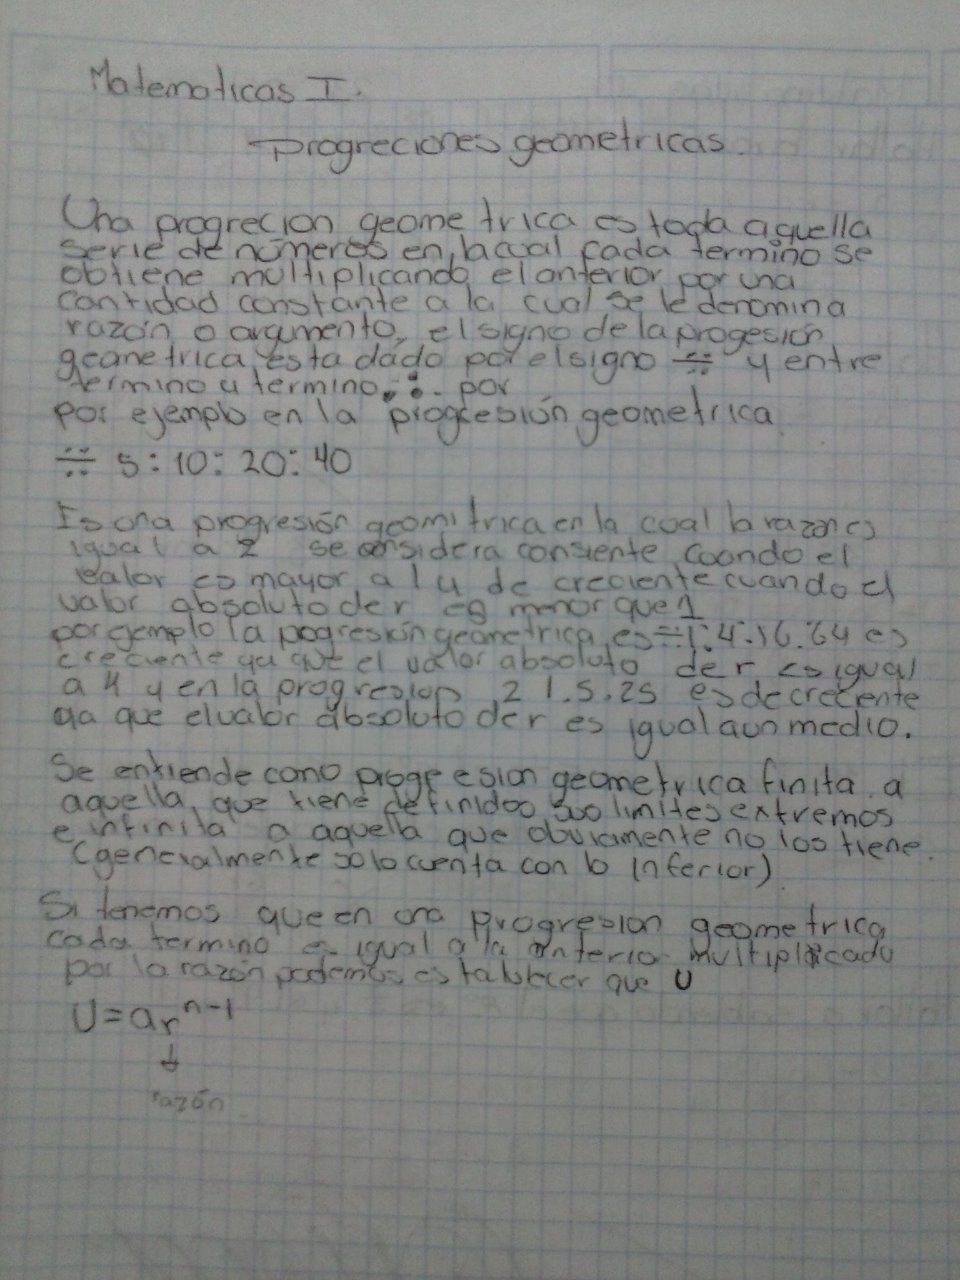 Matematicas I.
Progreciones geometricas.
Una progrecion geometrica es toda aquella
serie de números en la cual cada termino se
obtiene multiplicando el anterior por una
cantidad constante a la cual se le denomina
razón o argumento, el signo de la progesión
geometrica esta dado por el signo ÷ y entre
termino a termino : por
por ejemplo en la progresión geometrica
÷ 5 : 10 : 20 : 40
Es una progresión geometrica en la cual la razon es
igual a 2 se considera consiente cuando el
valor es mayor a 1 y de creciente cuando el
valor absoluto de r es menor que 1
por ejemplo la pogresión geometrica es ÷ 1:4:16:64 es
creciente ya que el valor absoluto de r es igual
a 4 y en la progresion 2 1 .5 .25 es de creciente
ya que el valor absoluto de r es igual a un medio.
Se entiende como progresion geometrica finita a
aquella que tiene definidos sus limites extremos
e infinita a aquella que obviamente no los tiene.
(generalmente solo cuenta con lo inferior)
Si tenemos que en una progresion geometrica
cada termino es igual a la anterior multiplicado
por la razón podemos establecer que U
U=ar^n-1
razón